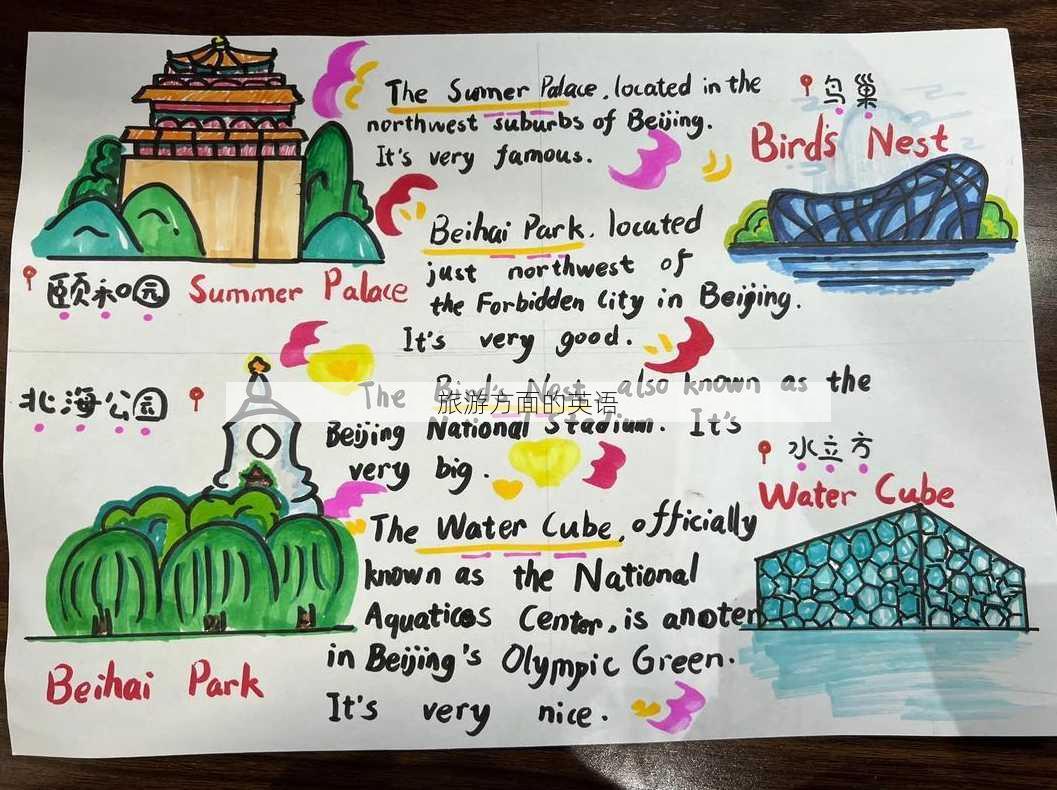 The Sumer Palace, located in the
northwest suburbs of Beijing.
It's very famous.
鸟巢
Bird's Nest
颐和园 Summer Palace
Beihai Park, located
just northwest of
the Forbidden City in Beijing.
It's very good.
北海公园
The Bird's Nest, also known as the
旅游方面的英语
Beijing National Stadium. It's
very big.
水立方
Water Cube
The Water Cube, officially
known as the National
Aquatics Center, is anoter
in Beijing's Olympic Green.
It's very nice.
Beihai Park